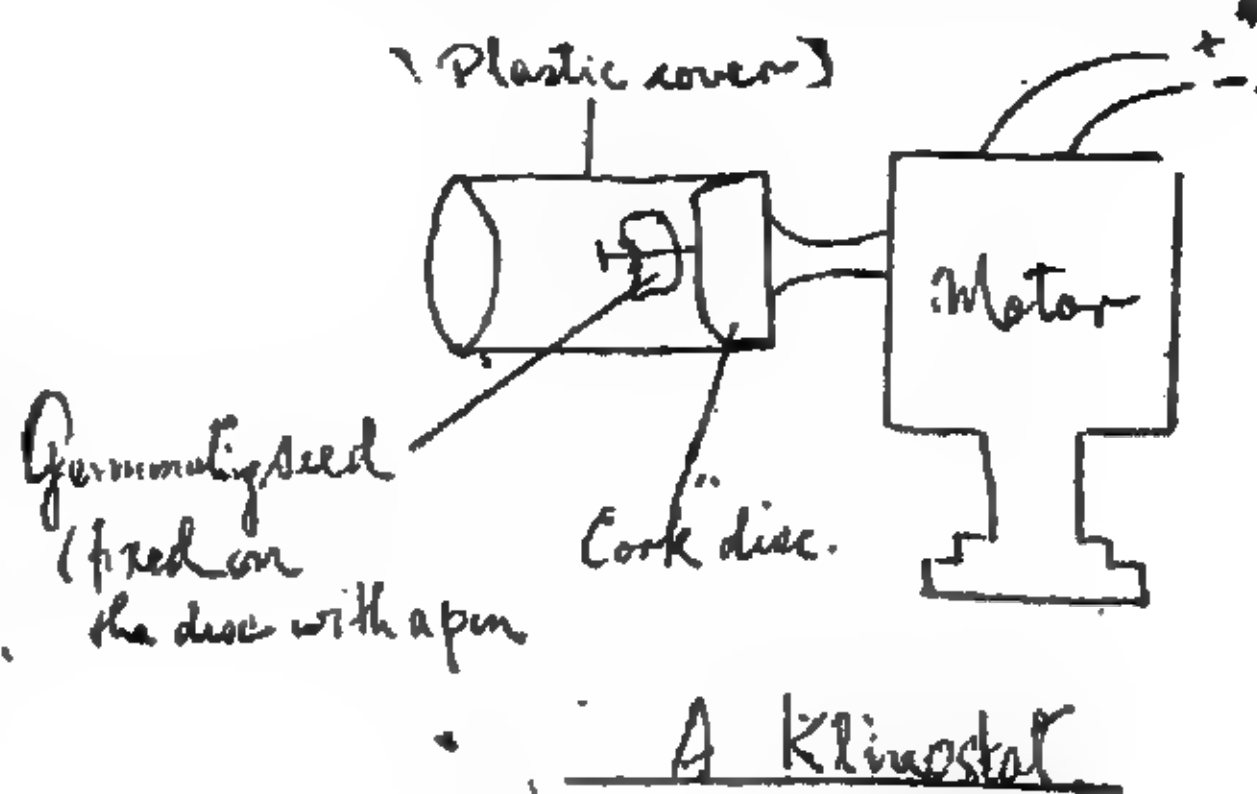 (Plastic cover)
+
-
Motor
Germinating seed
(fixed on
the disc with a pin
Cork disc.
A Klinostat